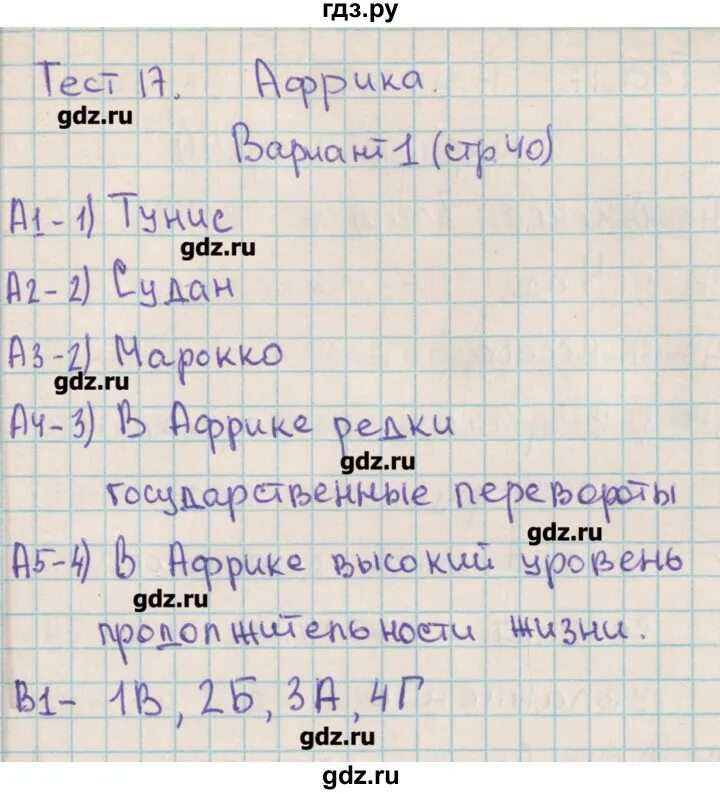 гдз.ру
Тест 17. Африка.
gdz.ru
Вариант 1 (стр 40)
А1-1) Тунис
gdz.ru
А2-2) Судан
А3-2) Марокко
gdz.ru
А4-3) В Африке редки
gdz.ru
государственные перевороты
gdz.ru
А5-4) В Африке высокий уровень
gdz.ru
продолжительности жизни.
В1- 1В, 2Б, 3А, 4Г
gdz.ru
gdz.ru